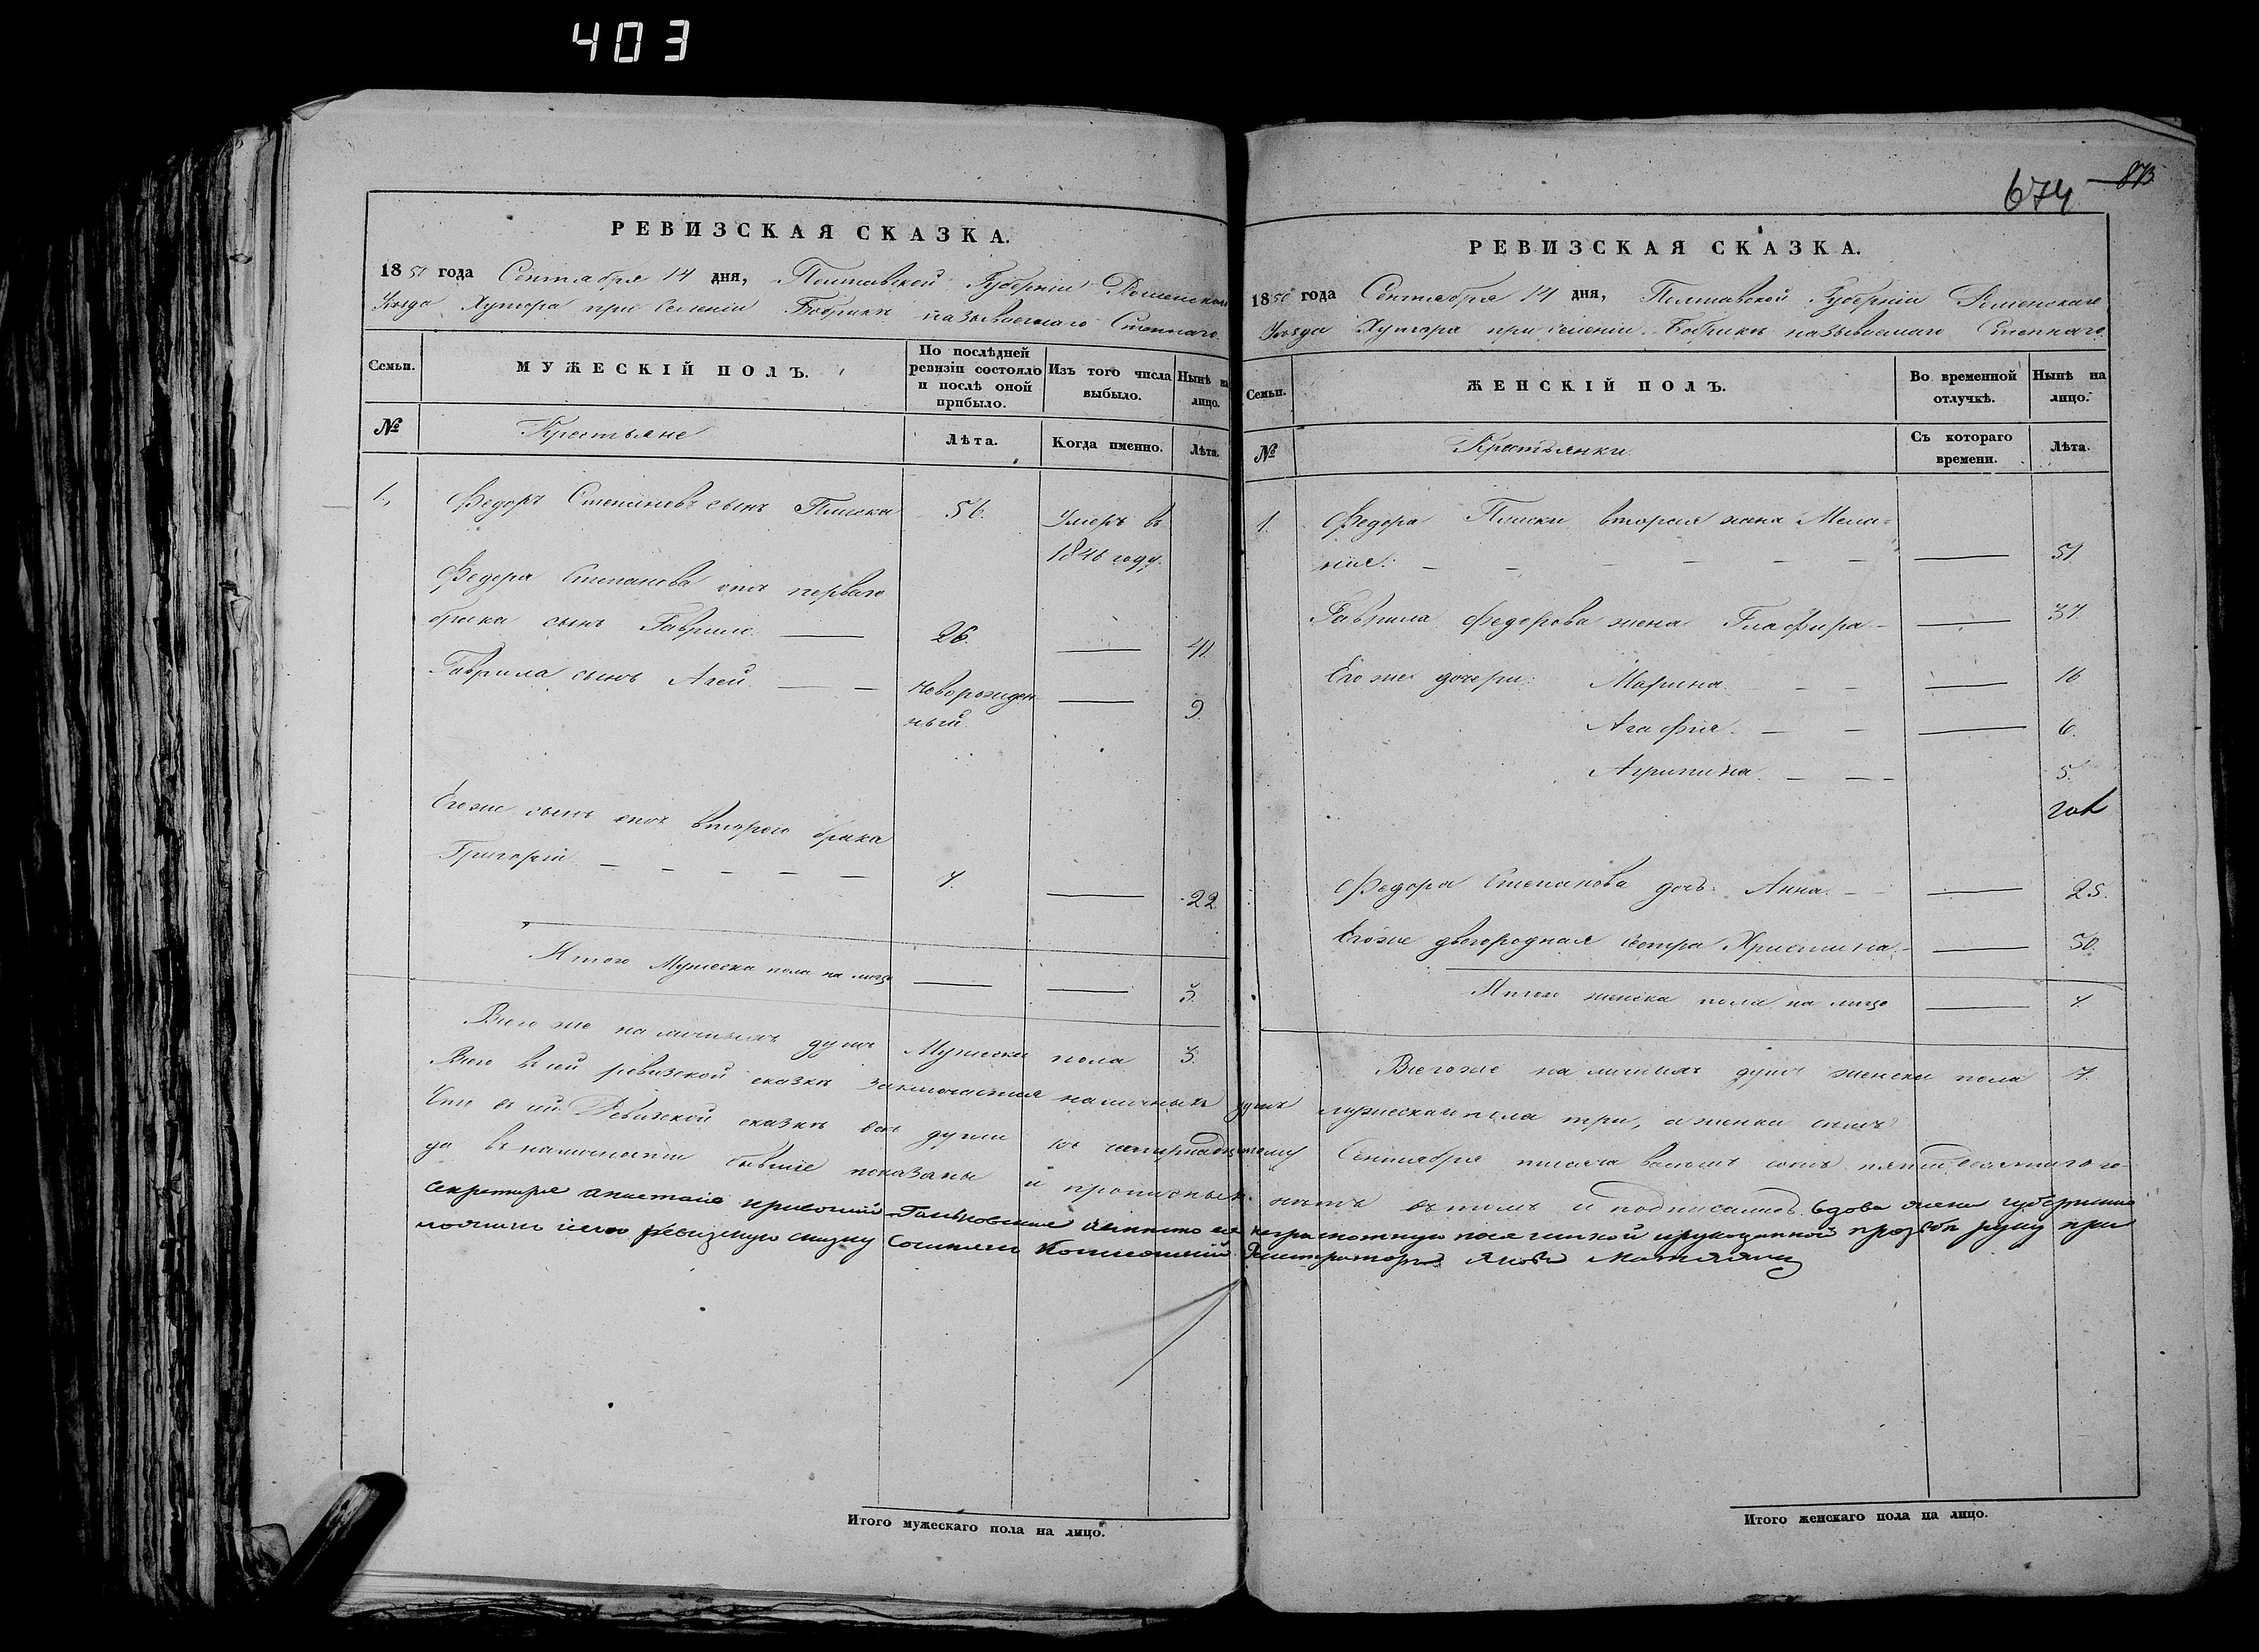 403
674 873
РЕВИЗСКАЯ СКАЗКА.
1850 года Сентября 14 дня, Полтавской Губерніи Роменскаго
Уѣзда Хутора при селеніи Бобрикѣ называемаго Степнаго
Семьи.
МУЖЕСКІЙ ПОЛЪ.
По послѣдней ревизіи состояло и послѣ оной прибыло.
Изъ того числа выбыло.
Нынѣ на лицо.
№
Крестьяне
Лѣта.
Когда именно.
Лѣта.
1., Федоръ Степановъ сынъ 56. Умеръ въ
1846 году.
Федора Степанова отъ перваго
брака сынъ Гаврило. — 26. — 41.
Гаврила сынъ Агей. — — Новорожден — 9.
ный.
Его же сынъ отъ втораго брака
Григорій. — — — — — 7. — 22.
Итого Мужеска пола на лицо — — 3.
РЕВИЗСКАЯ СКАЗКА.
1850 года Сентября 14 дня, Полтавской Губерніи Роменскаго
Уѣзда Хутора при селеніи Бобрикѣ называемаго Степнаго.
Семьи.
ЖЕНСКІЙ ПОЛЪ.
Во временной отлучкѣ.
Нынѣ на лицо.
№
Крестьянки.
Съ котораго времени.
Лѣта.
1. Федора вторая жена Мела-
нія. — — — — — — — 51.
Гаврила Федорова жена Глафира — — 37.
Его же дочери: Марина. — — — 16
Агафія. — — — 6.
Агрипина. — — - 5.
Федора Степанова дочь Анна. — — 25.
Его же двоюродная сестра Христина. — — 50.
Итого женска пола на лицо — 7.
Всего же наличныхъ душъ Мужеска пола 3. Всего же наличныхъ душъ женска пола 7.
Всего въ сей ревизской сказкѣ заключается наличныхъ душъ мужеска пола три, а женска семь
Что въ сей Ревизской сказкѣ всѣ души къ четырнадцатому Сентября тысяча восемь сотъ пятидесятаго го-
да въ наличности бывшіе показаны и прописныхъ нѣтъ въ томъ и подписалась вдова жена губернска
секретаря а вместо ея неграмотную по ея личной и рукоданной прозбѣ руку при
ревизскую сказку Коллежскій Регистраторъ Яковъ